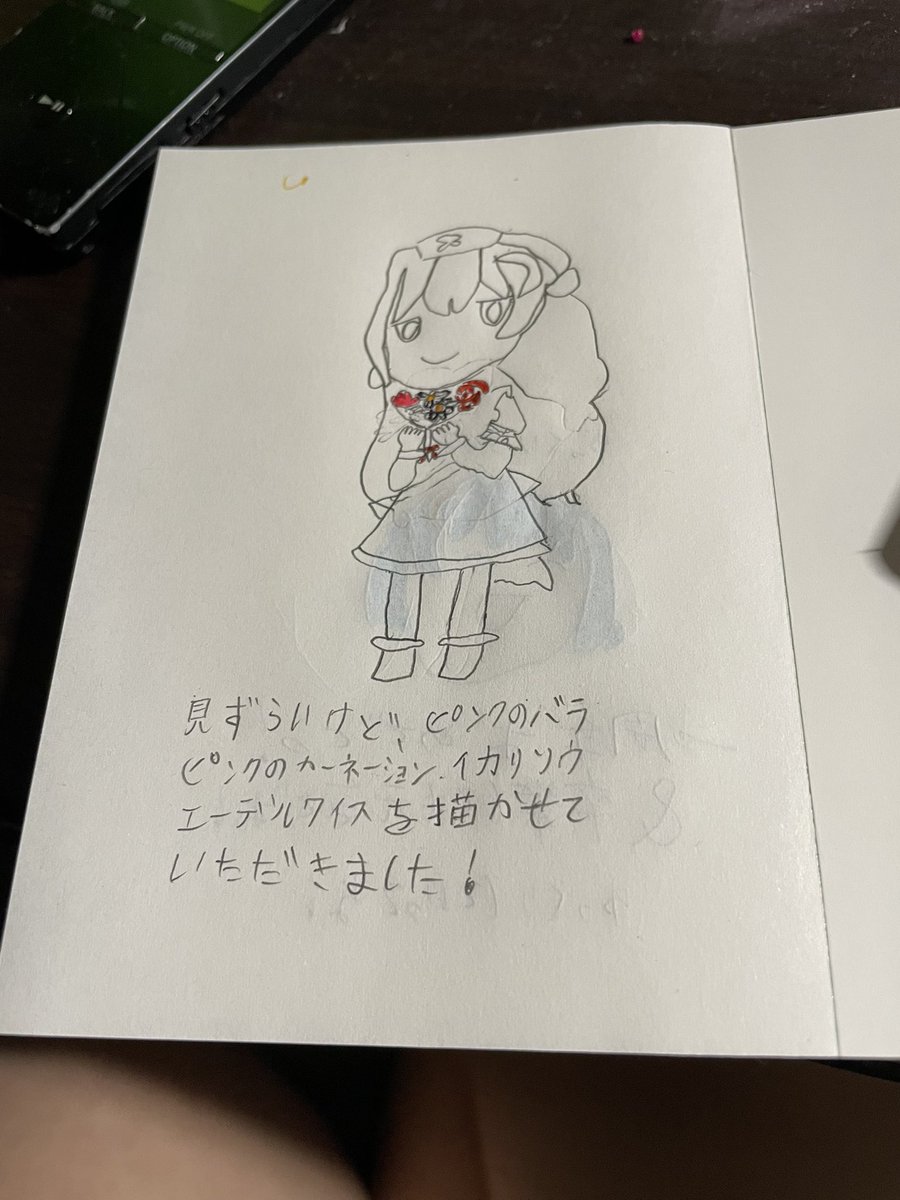 OPTION
見ずらいけど、ピンクのバラ
ピンクのカーネーション、イカリソウ
エーデルワイスを描かせて
いただきました!